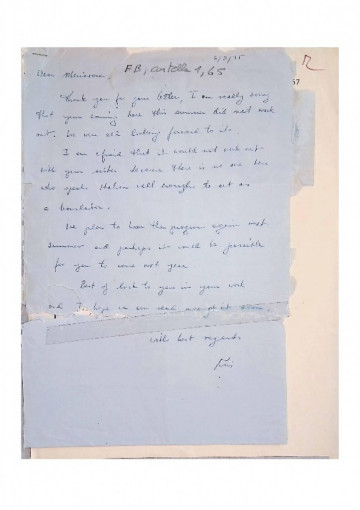 2/7/75
Dear
FB, cartella 9, 65
Thank you for your letter, I am really sorry
that your coming here this summer did not work
out. We were all looking forward to it.
I am afraid that it would not work out
with your sister because there is no one here
who speaks Italian well enough to act as
a translator.
We plan to have this program again next
summer and perhaps it would be possible
for you to come next year.
Best of luck to you in your work
and I hope we can meet
with best regards